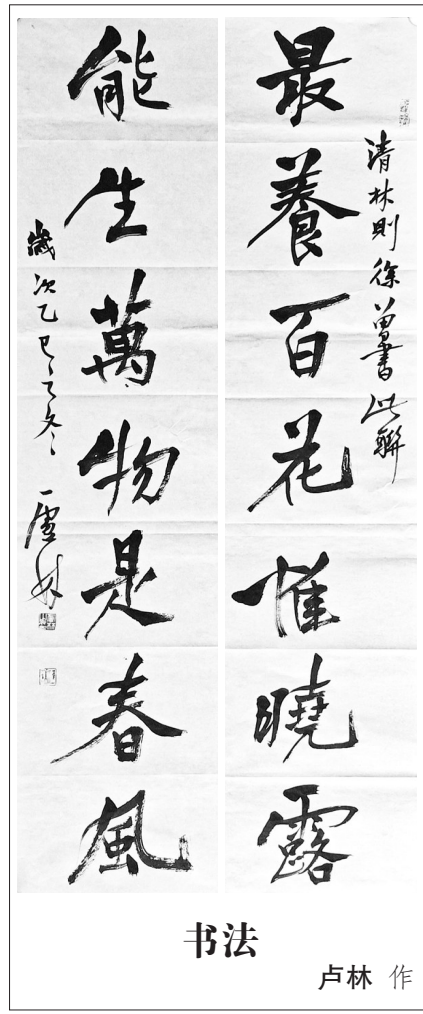 最養百花惟曉露
清林則徐曾書此聯
能生萬物是春風
歲次乙巳之冬 盧林
书法
卢林 作